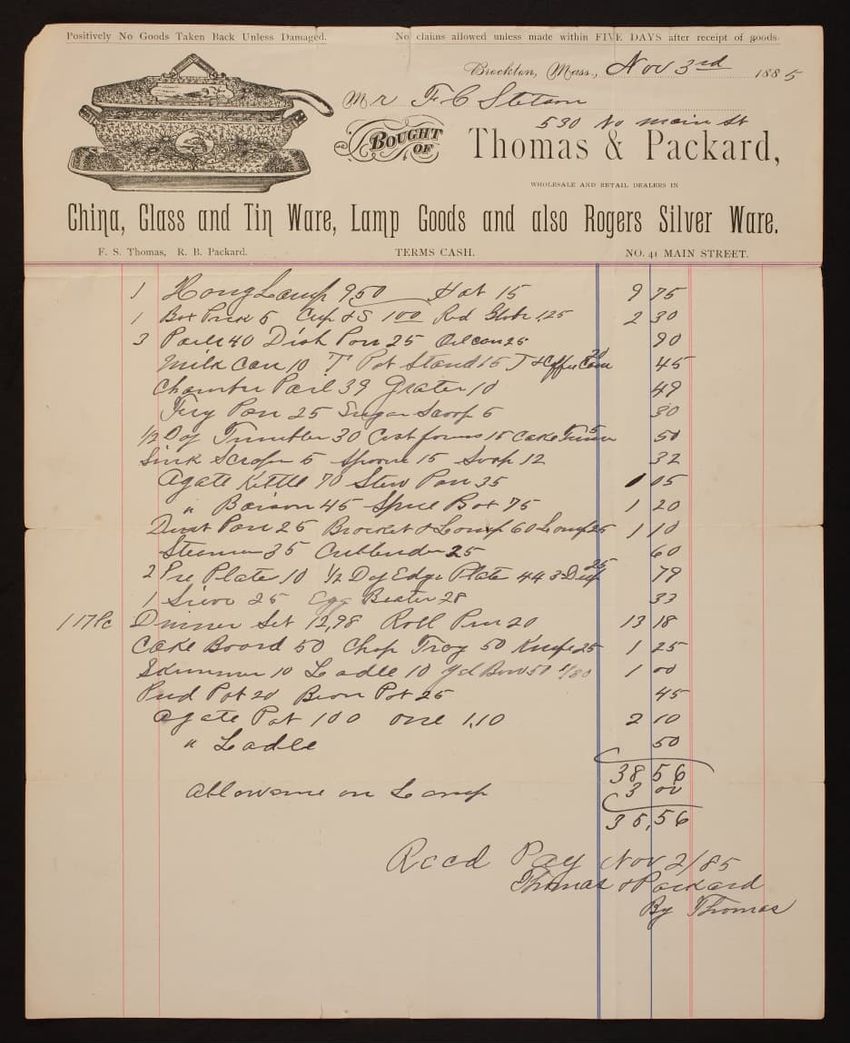 Positively No Goods Taken Back Unless Damaged. No claims allowed unless made within FIVE DAYS after receipt of goods.
Brockton, Mass., Nov 3rd 1885
Mr F C Stetson
530 No main St
BOUGHT OF Thomas & Packard,
WHOLESALE AND RETAIL DEALERS IN
China, Glass and Tin Ware, Lamp Goods and also Rogers Silver Ware.
F. S. Thomas, R. B. Packard. TERMS CASH. NO. 41 MAIN STREET.
1 Hong Lamp 950 15 9 75
1 Box 5 Cup & S 100 Red Globe 1,25 2 30
3 Pails 40 Dish Pan 25 Oil can 25 90
Milk Can 10 T Pot Stand 15 T & Coffee Can 20 45
Chamber Pail 39 Grater 10 49
Fry Pan 25 Sugar Scoop 5 30
1/2 Doz Tumbler 30 15 Cake 5 50
Sink Scraper 5 Spoons 15 Soap 12 32
Agate Kettle 70 Stew Pan 35 1 05
" 45 Spice Box 75 1 20
Dust Pan 25 Bracket & Lamp 60 Lamp 25 1 10
Steamer 35 25 60
2 Pie Plate 10 1/2 Doz Edge Plate 44 3 Deep 25 79
1 Sieve 25 Egg Beater 28 33
117 Pc Dinner Set 12,98 Roll Pin 20 13 18
Cake Board 50 Chop Tray 50 Knife 25 1 25
Skimmer 10 Ladle 10 Bowl 50 1 00
Pud Pot 20 Bean Pot 25 45
Agate Pot 100 one 1,10 2 10
" Ladle 50
38 56
Allowance on Lamp 3 00
35,56
Recd Pay Nov 2/85
Thomas & Packard
By Thomas